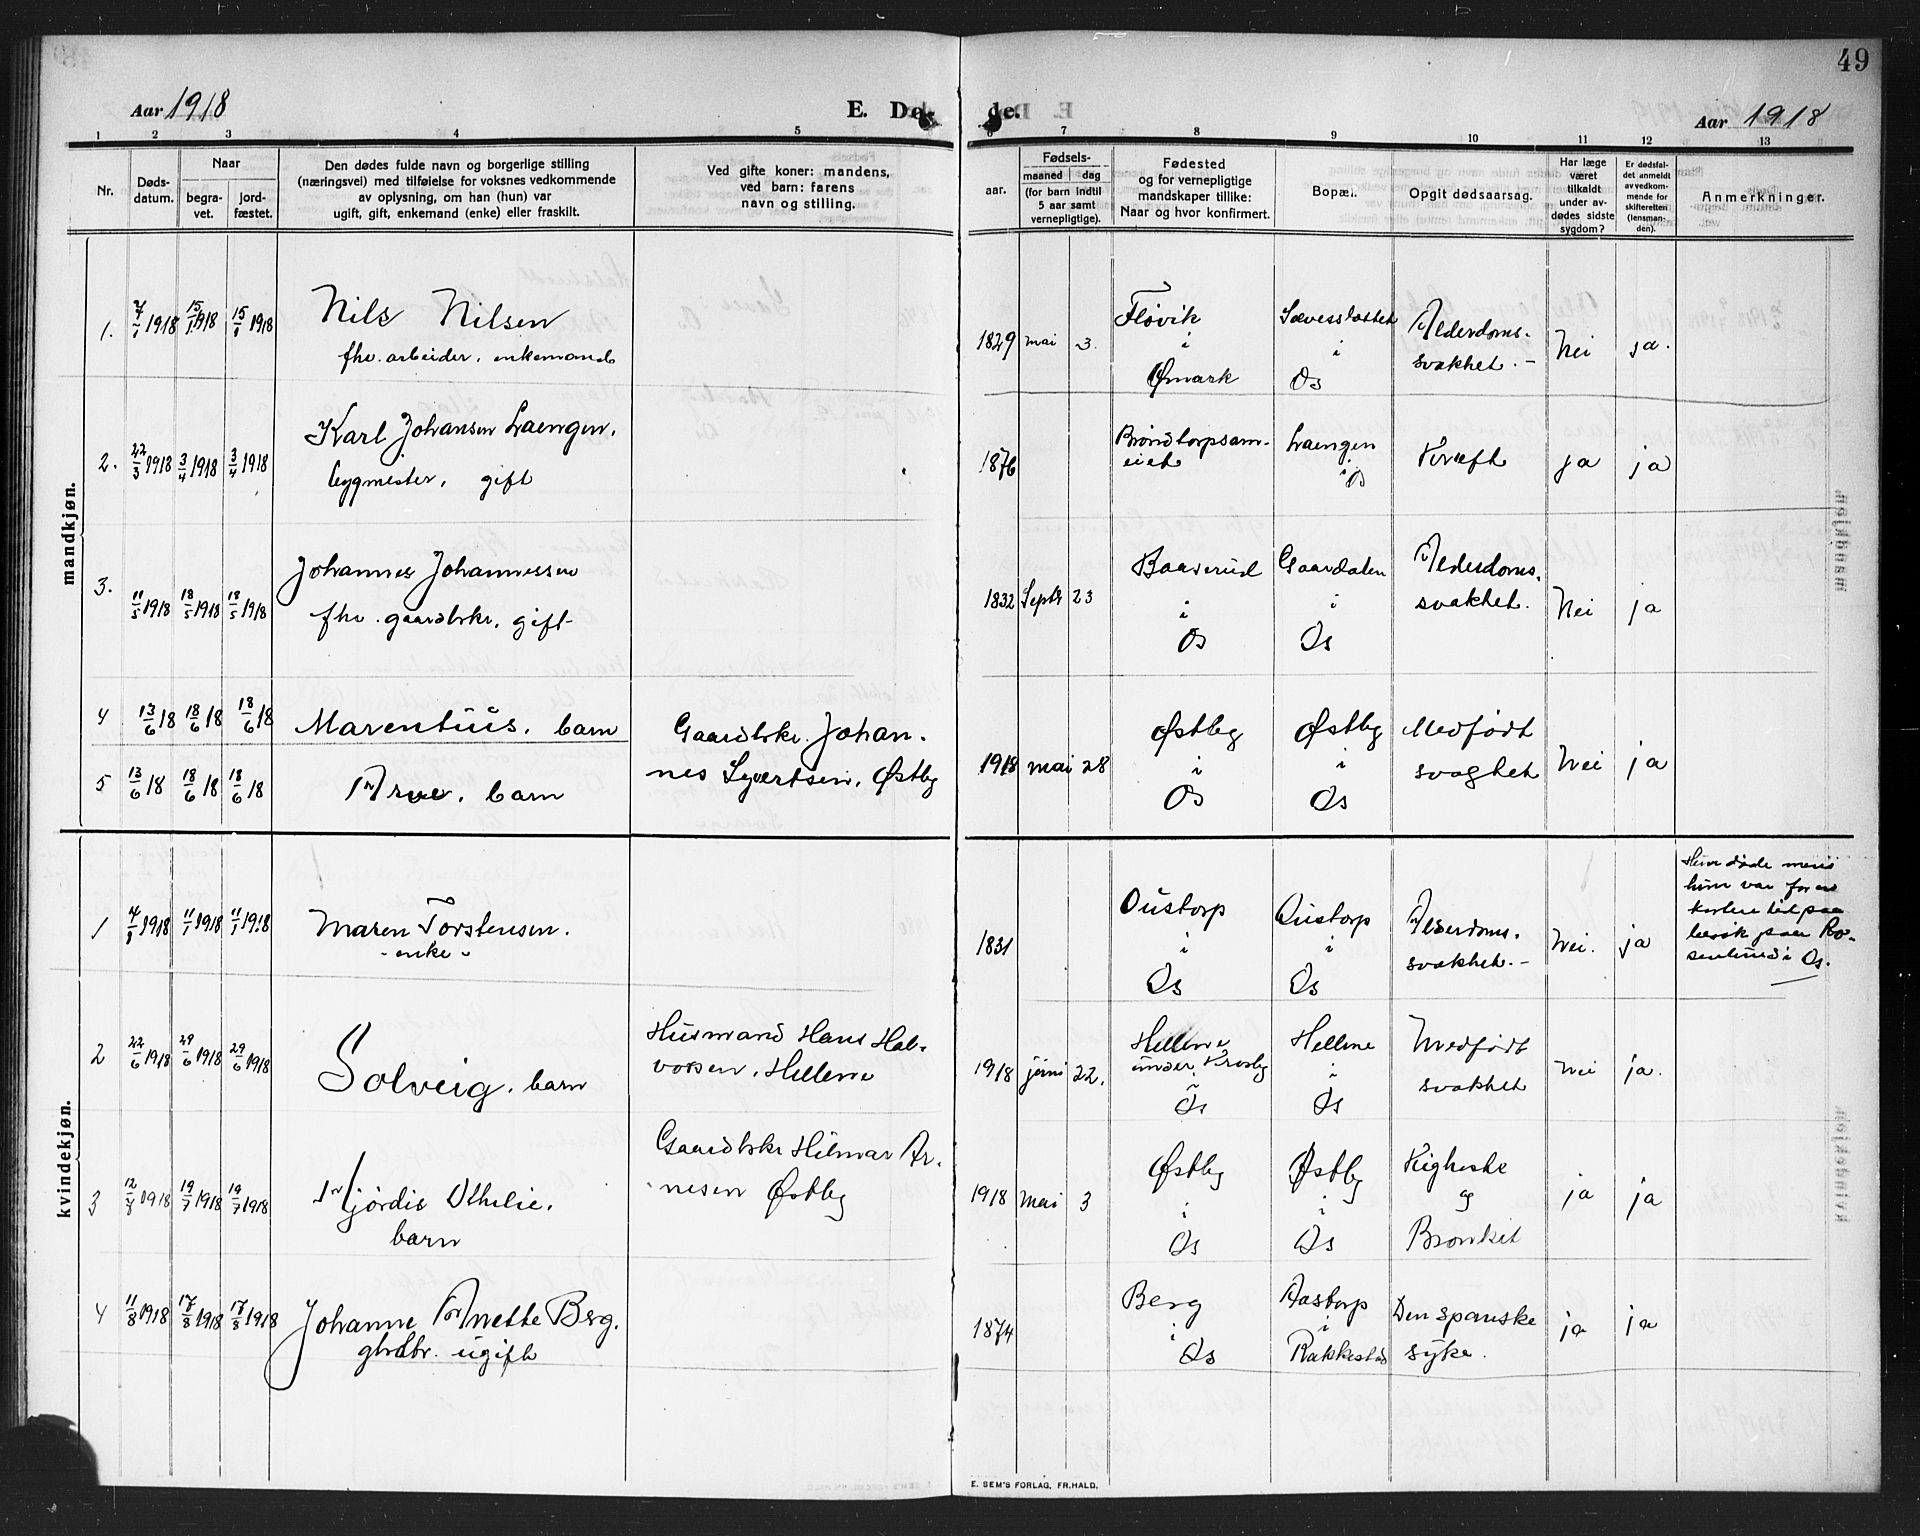 49
Aar 1918
E. Dø-
de.
Aar 1918
1 2 3 4 5 6 7 8 9 10 11 12 13
Nr.
Døds-
datum.
Naar
begra-
vet.
jord-
fæstet.
Den dødes fulde navn og borgerlige stilling
(næringsvei) med tilføielse for voksnes vedkommende
av oplysning, om han (hun) var
ugift, gift, enkemand (enke) eller fraskilt.
Ved gifte koner: mandens,
ved barn: farens
navn og stilling.
Fødsels-
aar.
maaned dag
(for barn indtil
5 aar samt
vernepligtige).
Fødested
og for vernepligtige
mandskaper tillike:
Naar og hvor konfirmert.
Bopæl.
Opgit dødsaarsag.
Har læge
været
tilkaldt
under av-
dødes sidste
sygdom?
Er dødsfal-
det anmeldt
av vedkom-
mende for
skifteretten
(lensman-
den).
Anmerkninger.
mandkjøn.
1. 7/1 1918 15/1 1918 15/1 1918
Nils Nilsen
fhv. arbeider, enkemand
1829 mai 3.
Fløvik
i
Ømark
i
Os
Alderdoms-
svakhet. -
Nei ja.
2. 22/3 1918 3/4 1918 3/4 1918
Karl Johansen Laengen,
bygmester, gift
1876
Brøndtorpsam-
eiet
Laengen
i
Os
Kræft
ja ja
3. 11/5 1918 18/5 1918 18/5 1918
Johannes Johannessen
fhv. gaardbkr, gift
1832 Septr 23
Baaserud
i
Os
Gaardalen
i
Os
Alderdoms.
svakhet.
Nei ja
4 13/6 18 18/6 18 18/6 18
Marentius. barn
Gaardbkr. Johan-
5 13/6 18 18/6 18 18/6 18
Arve, barn
nes Syvertsen, Østby
1918 mai 28
Østby
i
Os
Østby
i
Os
Medfødt
svaghet
Nei ja
kvindekjøn.
1 4/1 1918 11/1 1918 11/1 1918
Maren Torstensen.
- enke -
1831
Oustorp
i
Os
Oustorp
i
Os
Alderdoms.
svakhet. -
Nei. ja
Hun døde mens
hun var for en
kortere tid paa
besøk paa Ro-
senlund i Os.
2 22/6 1918 29/6 1918 29/6 1918
Solveig. barn
Husmand Hans Hal-
vorsen, Hellene
1918 juni 22.
Hellene
under Krosby
i
Os
Hellene
i
Os
Medfødt
svakhet
Nei ja.
3 1918 19/7 1918 19/7 1918
Hjørdis Othilie.
barn
Gaardbkr Hilmar Ar-
nesen Østby
1918 mai 3
Østby
i
Os
Østby
i
Os
Kighoste
og
Bronkit
ja ja
4 11/8 1918 17/8 1918 17/8 1918
Johanne Anette Berg.
gbrdtr. ugift
1874
Berg
i
Os
Aastorp
i
Rakkestad
Den spanske
syke.
ja ja
E. SEM'S FORLAG, FR.HALD.